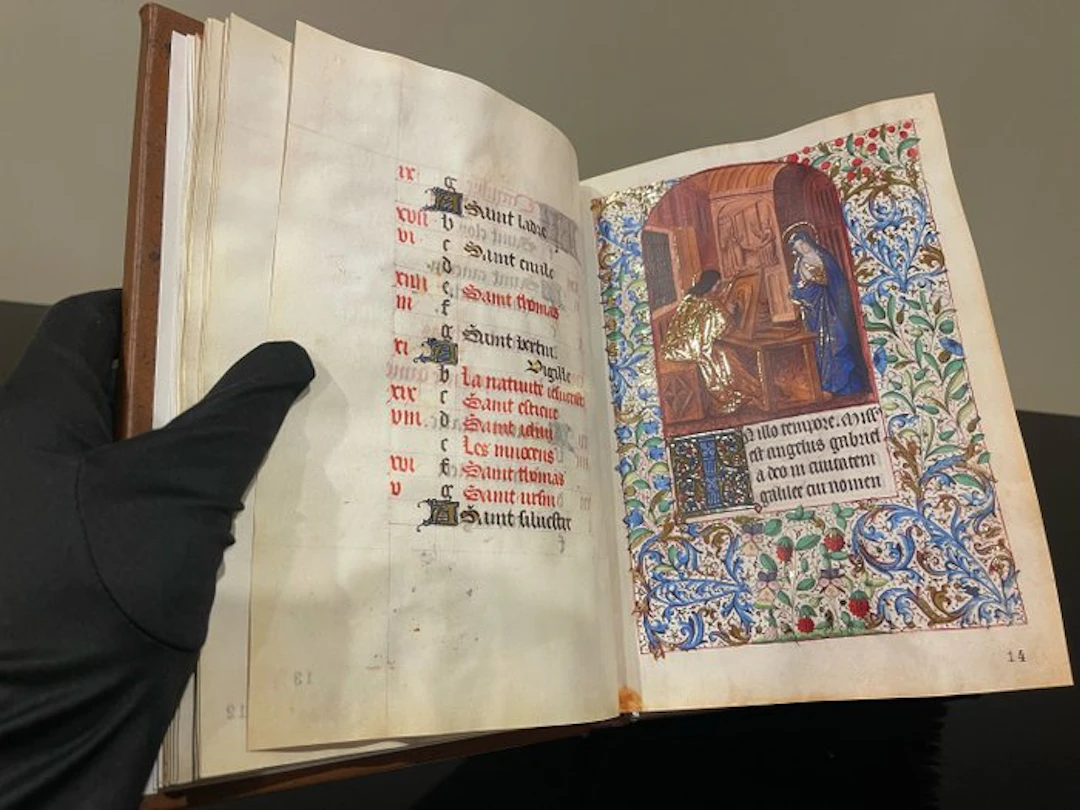 ix g
A Saint ladre
xvii b
vi c Saint
d
xiiii e Saint thomas
iii f
g Saint
xi A Vigille
b La nativite
xix c Saint estiene
viii d Saint
e Les innocens
xvi f Saint thomas
v g Saint ursin
A Saint silvestre
13
12
In illo tempore. Miss⁹
est angelus gabriel
a deo in ciuitatem
galilee cui nomen
14